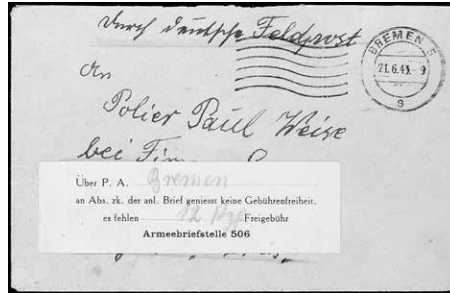 Durch deutsche Feldpost
BREMEN 5
21.6.43. 9
s
An
Polier Paul Weise
bei
Über P. A. Bremen
an Abs. zk. der anl. Brief geniesst keine Gebührenfreiheit.
es fehlen 12 Rpf Freigebühr
Armeebriefstelle 506